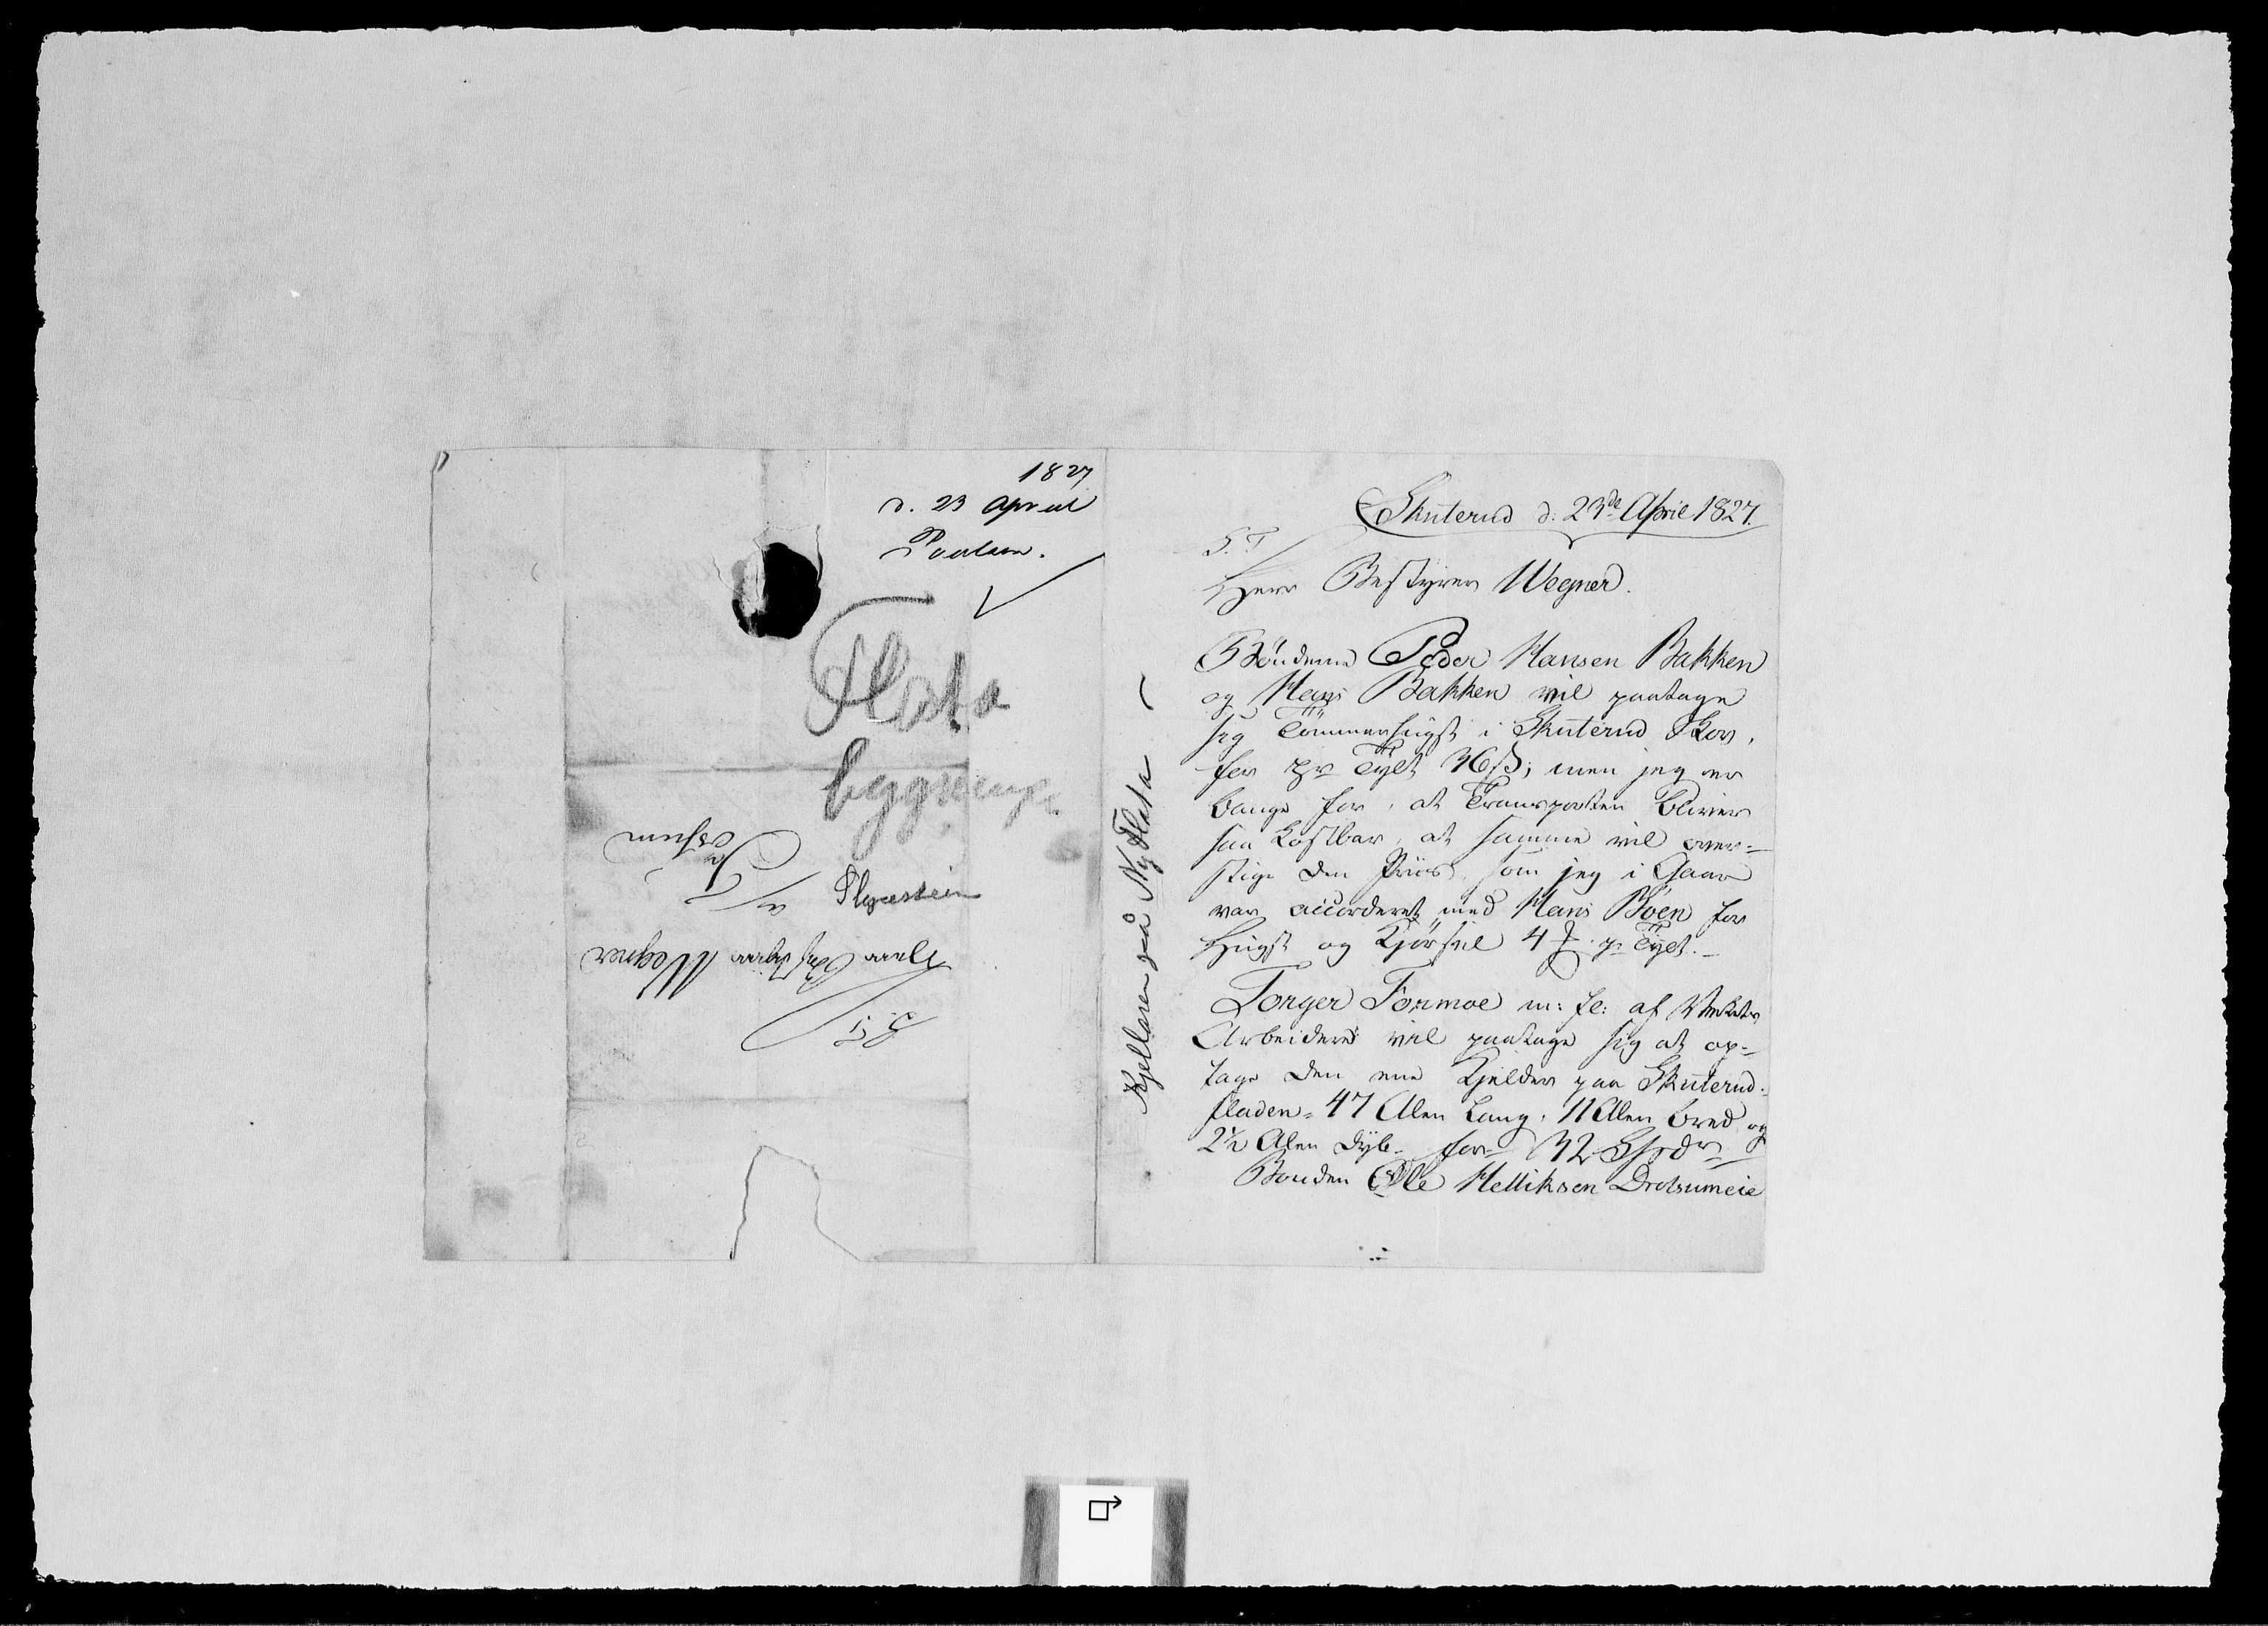 1827
d. 23 April
Poulsen.
Flata
bygninge
S. T.
Herr Bestyrer Wegner
Fossum
Kjelleren paa Ny Flata
Skuterud d: 23de April 1827.
S. T.
Herr Bestyrer Wegner.
Bönderne Peder Hansen Bakken
og Hans Bakken vil paatage
sig Tömmerhugst i Skuterud Skov,
for pr Tylt 36 ß; men jeg er
bange for, at Transporten bliver
saa kostbar, at samme vil over-
stige den Priis, som jeg i Gaar
var accorderet med Hans Böen for
Hugst og Kjörsel 4 pr Tylt.
Torger Formoe m: fl: af Verkets
Arbeidere vil paatage sig at op-
tage den ene Kjelder paa Skuterud-
fladen - 47 Alen lang, 11 Alen bred og
2½ Alen dyb - for 32 Spdr
Bonden Ole Helliksen Drolsumeie